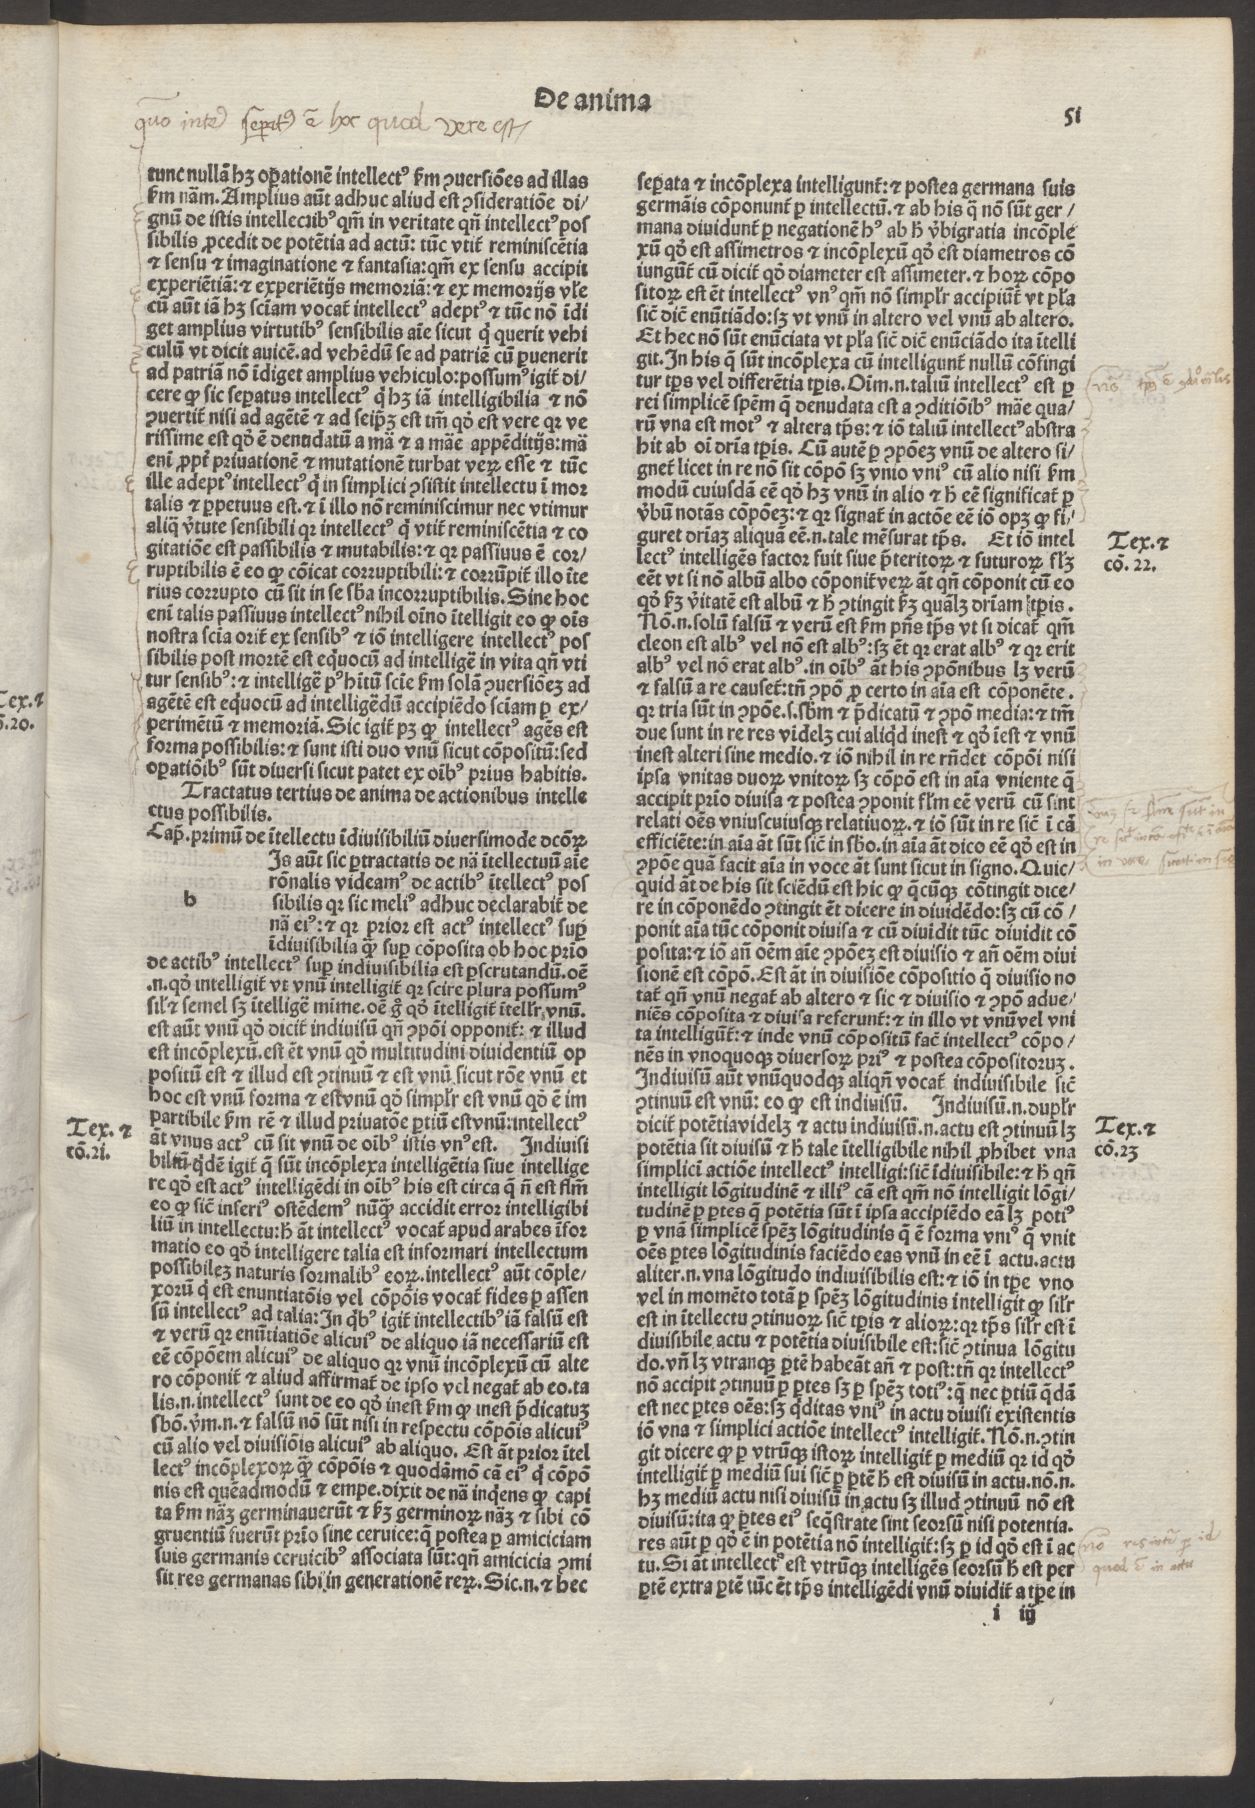 De anima
51
quo inte⁹ sepat⁹ ē hoc quod vere est
tunc nullā hꝫ oꝑationē intellectꝰ ẜm ꝯuersiōes ad illas
ẜm nām. Amplius aūt adhuc aliud est ꝯsideratiōe di/
gnū de istis intellectibꝰ qm̄ in veritate qn̄ intellectꝰ pos
sibilis ꝓcedit de potētia ad actū: tūc vtit̄ reminiscētia
⁊ sensu ⁊ imaginatione ⁊ fantasia: qm̄ ex sensu accipit
experiētiā: ⁊ experiētijs memoriā: ⁊ ex memorijs vl̄e
cū aūt iā hꝫ sciam vocat̄ intellectꝰ adeptꝰ ⁊ tūc nō īdi
get amplius virtutibꝰ sensibilis aīe sicut q̇ querit vehi
culū vt dicit auicē. ad vehēdū se ad patriē cū ꝑuenerit
ad patriā nō īdiget amplius vehiculo: possumꝰ igit̄ di/
cere ꝙ sic sepatus intellectꝰ q̇ hꝫ iā intelligibilia ⁊ nō
ꝯuertit̄ nisi ad agētē ⁊ ad seip̄ꝫ est tm̄ qȯ est vere qꝛ ve
rissime est qȯ ē denudatū a mā ⁊ a māe appēditijs: mā
eni ꝓpt̄ priuationē ⁊ mutationē turbat veꝝ esse ⁊ tūc
ille adeptꝰ intellectꝰ q̇ in simplici ꝯsistit intellectu ī mor
talis ⁊ ꝑpetuus est. ⁊ ī illo nō reminiscimur nec vtimur
aliq̄ v̇tute sensibili qꝛ intellectꝰ q̇ vtit̄ reminiscētia ⁊ co
gitatiōe est passibilis ⁊ mutabilis: ⁊ qꝛ passiuus ē cor/
ruptibilis ē eo ꝙ cōicat corruptibili: ⁊ corrūpit̄ illo īte
rius corrupto cū sit in se sb̄a incorruptibilis. Sine hoc
eni talis passiuus intellectꝰ nihil oīno ītelligit eo ꝙ oīs
nostra scīa orit̄ ex sensibꝰ ⁊ iō intelligere intellectꝰ pos
sibilis post mortē est eq̇uocū ad intelligē in vita qn̄ vti
tur sensibꝰ: ⁊ intelligē pꝰ hītū scīe ẜm solā ꝯuersiōeꝫ ad
agētē est equocū ad intelligēdū accipiēdo sciam ꝑ ex/
perimētū ⁊ memoriā. Sic igit̄ pꝫ ꝙ intellectꝰ agēs est
forma possibilis: ⁊ sunt isti duo vnū sicut cōpositū: sed
oꝑatiōibꝰ sūt diuersi sicut patet ex oībꝰ prius habitis.
Tractatus tertius de anima de actionibus intelle
ctus possibilis.
Cap̄. primū de ītellectu īdiuisibiliū diuersimode dcōꝝ
Is aūt sic ꝑtractatis de nā ītellectuū aīe
rōnalis videamꝰ de actibꝰ ītellectꝰ pos
b sibilis qꝛ sic meliꝰ adhuc declarabit̄ de
nā eiꝰ: ⁊ qꝛ prior est actꝰ intellectꝰ suꝑ
īdiuisibilia q̄ꝫ suꝑ cōposita ob hoc prīo
de actibꝰ intellectꝰ suꝑ indiuisibilia est ꝑscrutandū. oē
.n. qȯ intelligit̄ vt vnū intelligit̄ qꝛ scire plura possumꝰ
sil̄ ⁊ semel sꝫ ītelligē mīme. oē g̊ qȯ ītelligit̄ ītellr̄ vnū.
est aūt vnū qȯ dicit̄ indiuisū qn̄ ꝯpōi opponit̄: ⁊ illud
est incōplexū. est ēt vnū qȯ multitudini diuidentiū op
positū est ⁊ illud est ꝯtinuū ⁊ est vnū sicut rōe vnū et
hoc est vnū forma ⁊ est vnū qȯ simplr̄ est vnū qȯ ē im
partibile ẜm rē ⁊ illud priuatōe ꝑtiū est vnū: intellectꝰ
āt vnus actꝰ cū sit vnū de oībꝰ istis vnꝰ est. Indiuisi
biliū q̇dē igit̄ q̄ sūt incōplexa intelligētia siue intellige
re qȯ est actꝰ intelligēdi in oībꝰ his est circa q̄ n̄ est flm̄
eo ꝙ sic̄ inferiꝰ ostēdemꝰ nūq̄ accidit error intelligibi
liū in intellectu: h̄ āt intellectꝰ vocat̄ apud arabes īfor
matio eo qȯ intelligere talia est informari intellectum
possibileꝫ naturis formalibꝰ eoꝝ. intellectꝰ aūt cōple/
xorū q̇ est enuntiatōis vel cōpōis vocat̄ fides ꝑ assen
sū intellectꝰ ad talia: In q̇bꝰ igit̄ intellectibꝰ iā falsū est
⁊ verū qꝛ enūtiatiōe alicuiꝰ de aliquo iā necessariū est
eē cōpōem alicuiꝰ de aliquo qꝛ vnū incōplexū cū alte
ro cōponit̄ ⁊ aliud affirmat̄ de ipso vel negat̄ ab eo. ta
lis. n. intellectꝰ sunt de eo qȯ inest ẜm ꝙ inest p̄dicatuꝫ
sbō. v̇m. n. ⁊ falsū nō sūt nisi in respectu cōpōis alicuiꝰ
cū alio vel diuisiōis alicuiꝰ ab aliquo. Est āt prior ītel
lectꝰ incōplexoꝝ q̄ꝫ cōpōis ⁊ quodāmō cā eiꝰ q̇ cōpō
nis est quēadmodū ⁊ empe. dixit de nā inq̇ens ꝙ capi
ta ẜm nāꝫ germinauerūt ⁊ ẜꝫ germinoꝝ nāꝫ ⁊ sibi cō
gruentiū fuerūt prīo sine ceruice: q̄ postea ꝑ amiciciam
suis germanis ceruicibꝰ associata sūt: qn̄ amicicia ꝯmi
sit res germanas sibi in generationē reꝝ. Sic. n. ⁊ hec
Tex. ⁊
cō. 20.
Tex. ⁊
cō. 21.
seꝑata ⁊ incōplexa intelligunt̄: ⁊ postea germana suis
germāis cōponunt̄ ꝑ intellectū. ⁊ ab his q̄ nō sūt ger/
mana diuidunt̄ ꝑ negationē hꝰ ab h̄ v̇bigratia incōple
xū qȯ est assimetros ⁊ incōplexū qȯ est diametros cō
iungūt̄ cū dicit̄ qȯ diameter est assimeter. ⁊ hoꝝ cōpo
sitoꝝ est ēt intellectꝰ vnꝰ qm̄ nō simplr̄ accipiūt̄ vt pl̄a
sic̄ dic̄ enūtiādo: sꝫ vt vnū in altero vel vnū ab altero.
Et hec nō sūt enūciata vt pl̄a sic̄ dic̄ enūciādo ita ītelli
git. In his q̄ sūt incōplexa cū intelligunt̄ nullū cōfingi
tur tp̄s vel differētia tp̄is. Oīm. n. taliū intellectꝰ est ꝑ
rei simplicē spēm q̄ denudata est a ꝯditiōibꝰ māe qua/
rū vna est motꝰ ⁊ altera tp̄s: ⁊ iō taliū intellectꝰ abstra
hit ab oī dr̄ia tp̄is. Cū autē ꝑ ꝯpōeꝫ vnū de altero si/
gnet̄ licet in re nō sit cōpō sꝫ vnio vniꝰ cū alio nisi ẜm
modū cuiusdā eē qȯ hꝫ vnū in alio ⁊ h̄ eē significat̄ ꝑ
v̇bū notās cōpōeꝫ: ⁊ qꝛ signat̄ in actōe eē iō opꝫ ꝙ fi/
guret dr̄iaꝫ aliquā eē. n. tale mēsurat tp̄s. Et iō intel
lectꝰ intelligēs factor fuit siue p̄teritoꝝ ⁊ futuroꝝ flꝫ
eēt vt si nō albū albo cōponit̄ veꝝ āt qn̄ cōponit cū eo
qȯ ẜꝫ v̇itatē est albū ⁊ h̄ ꝯtingit ẜꝫ quālꝫ dr̄iam tp̄is.
Nō. n. solū falsū ⁊ verū est ẜm pn̄s tp̄s vt si dicat̄ qm̄
cleon est albꝰ vel nō est albꝰ: sꝫ ēt qꝛ erat albꝰ ⁊ qꝛ erit
albꝰ vel nō erat albꝰ. in oībꝰ āt his ꝯpōnibus lꝫ verū
⁊ falsū a re causet̄: tn̄ ꝯpō ꝓ certo in aīa est cōponēte.
qꝛ tria sūt in ꝯpōe. s. sbm̄ ⁊ p̄dicatū ⁊ ꝯpō media: ⁊ tm̄
due sunt in re res videlꝫ cui aliq̇d inest ⁊ qȯ īest ⁊ vnū
inest alteri sine medio. ⁊ iō nihil in re rn̄det cōpōi nisi
ipsa vnitas duoꝝ vnitoꝝ sꝫ cōpō est in aīa vniente q̄
accipit prīo diuisa ⁊ postea ꝯponit flm̄ eē verū cū sint
relati oēs vniuscuiusqꝫ relatiuoꝝ. ⁊ iō sūt in re sic̄ ī cā
efficiēte: in aīa āt sūt sic̄ in sbō. in aīa āt dico eē qȯ est in
ꝯpōe quā facit aīa in voce āt sunt sicut in signo. Quic/
quid āt de his sit sciēdū est hic ꝙ q̄cūqꝫ cōtingit dice/
re in cōponēdo ꝯtingit ēt dicere in diuidēdo: sꝫ cū cō/
ponit aīa tūc cōponit diuisa ⁊ cū diuidit tūc diuidit cō
posita: ⁊ iō añ oēm aīe ꝯpōeꝫ est diuisio ⁊ añ oēm diui
sionē est cōpō. Est āt in diuisiōe cōpositio q̄ diuisio no
tat̄ qn̄ vnū negat̄ ab altero ⁊ sic ⁊ diuisio ⁊ ꝯpō adue/
niēs cōposita ⁊ diuisa referunt̄: ⁊ in illo vt vnū vel vni
ta intelligūt̄: ⁊ inde vnū cōpositū fac̄ intellectꝰ cōpo/
nēs in vnoquoqꝫ diuersoꝝ priꝰ ⁊ postea cōpositoruꝫ.
Indiuisū aūt vnūquodqꝫ aliqn̄ vocat̄ indiuisibile sic̄
ꝯtinuū est vnū: eo ꝙ est indiuisū. Indiuisū. n. duplr̄
dicit̄ potētia videlꝫ ⁊ actu indiuisū. n. actu est ꝯtinuū lꝫ
potētia sit diuisū ⁊ h̄ tale ītelligibile nihil ꝓhibet vna
simplici actiōe intellectꝰ intelligi: sic̄ īdiuisibile: ⁊ h̄ qn̄
intelligit lōgitudinē ⁊ illiꝰ cā est qm̄ nō intelligit lōgi/
tudinē ꝑ ꝑtes q̄ potētia sūt ī ipsa accipiēdo eā lꝫ potiꝰ
ꝑ vnā simplicē spēꝫ lōgitudinis q̄ ē forma vniꝰ q̄ vnit
oēs ꝑtes lōgitudinis faciēdo eas vnū in eē ī actu. actu
aliter. n. vna lōgitudo indiuisibilis est: ⁊ iō in tp̄e vno
vel in momēto totā ꝑ spēꝫ lōgitudinis intelligit ꝙ silr̄
est in ītellectu ꝯtinuoꝝ sic̄ tp̄is ⁊ alioꝝ: qꝛ tp̄s silr̄ est ī
diuisibile actu ⁊ potētia diuisibile est: sic̄ ꝯtinua lōgitu
do. vn̄ lꝫ vtranqꝫ ꝑtē habeāt añ ⁊ post: tn̄ qꝛ intellectꝰ
nō accipit ꝯtinuū ꝑ ꝑtes sꝫ ꝑ spēꝫ totiꝰ: q̄ nec ꝑtiū q̄dā
est nec ꝑtes oēs: sꝫ q̇ditas vniꝰ in actu diuisi existentis
iō vna ⁊ simplici actiōe intellectꝰ intelligit̄. Nō. n. ꝯtin
git dicere ꝙ ꝑ vtrūqꝫ istoꝝ intelligit̄ ꝑ mediū qꝛ id qȯ
intelligit̄ ꝑ mediū sui sic̄ ꝑ ꝑtē h̄ est diuisū in actu. nō. n.
hꝫ mediū actu nisi diuisū in actu sꝫ illud ꝯtinuū nō est
diuisū: ita ꝙ ꝑtes eiꝰ seq̄strate sint seorsū nisi potentia.
res aūt ꝑ qȯ ē in potētia nō intelligit̄: sꝫ ꝑ id qȯ est ī ac
tu. Si āt intellectꝰ est vtrūqꝫ intelligēs seorsū h̄ est per
ꝑtē extra ꝑtē tūc ēt tp̄s intelligēdi vnū diuidit̄ a tp̄e in
i iij
Tex. ⁊
cō. 22.
Tex. ⁊
cō. 23
res intꝰ ꝑ id
quod ē in actu